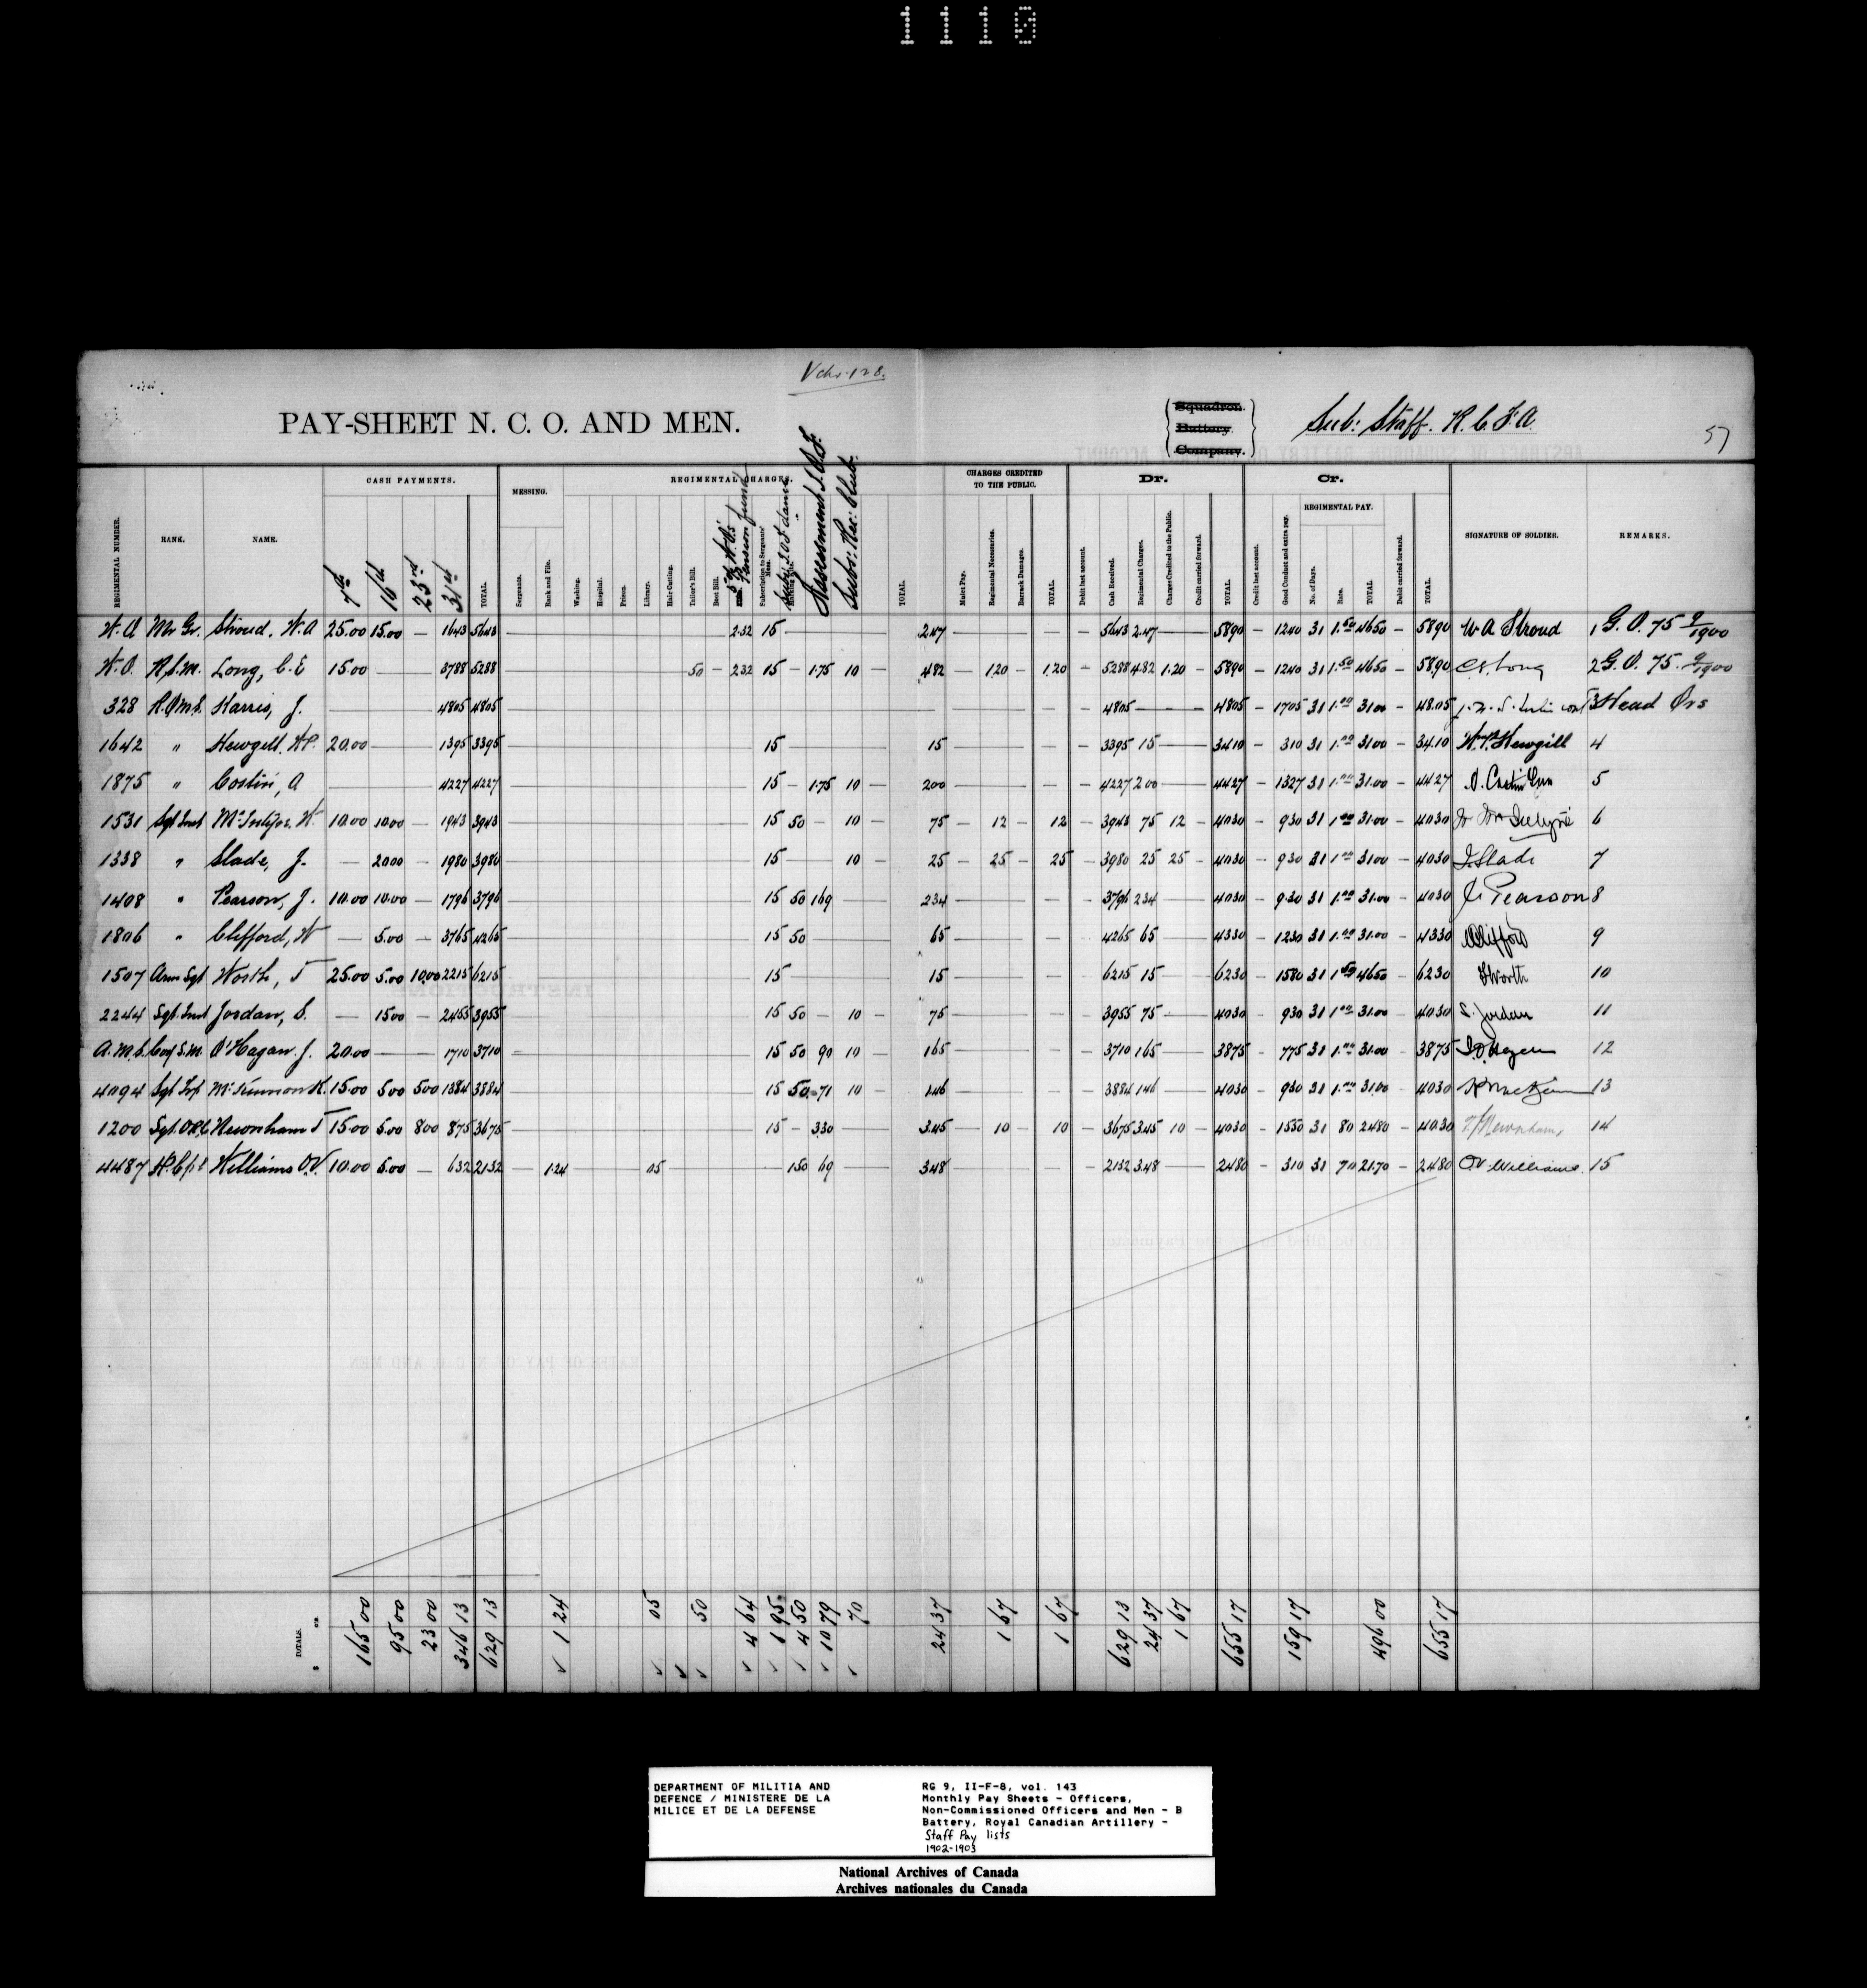 1110
Vchr. 128.
PAY-SHEET N. C. O. AND MEN.
Squadron.
Battery.
Company.
Sub: Staff. R. C. F. A.
57
REGIMENTAL NUMBER. RANK. NAME. CASH PAYMENTS. 7th 16th 23rd 31st TOTAL
MESSING. Sergeants. Rank and File.
REGIMENTAL CHARGES. Washing. Hospital. Prison. Library. Hair Cutting. Tailor's Bill. Boot Bill. 5% W.O's Pension fund Subscription to Sergeants' Mess. Subs: dance Assessment I.O.F. Subs: Rec: Club: TOTAL
CHARGES CREDITED TO THE PUBLIC. Mulct Pay. Regimental Necessaries. Barrack Damages. TOTAL
Dr. Debit last account. Cash Received. Regimental Charges. Charges Credited to the Public. Credit carried forward. TOTAL
Cr. Credit last account. Good Conduct and extra pay. REGIMENTAL PAY. No. of Days. Rate. TOTAL Debit carried forward. TOTAL
SIGNATURE OF SOLDIER. REMARKS.
W.O Mr Gr. Stroud, W.A 25.00 15.00 — 1643 5643 — 2.32 15 — 2.47 — — — 5643 2.47 — 5890 — 1240 31 1.50 4650 — 5890 W A Stroud 1 G.O. 75 9/1900
W.O. R.S.M. Long, C. E 15.00 — 3788 5288 — 50 — 232 15 — 1.75 10 — 482 — 120 — 1.20 — 5288 4.82 1.20 — 5890 — 1240 31 1.50 4650 — 5890 C.E. Long 2 G.O. 75. 9/1900
328 R.Q.M.S. Harris, J. — 4805 4805 — — — 4805 — 4805 — 1705 31 1.00 31.00 — 48.05 3 Head Qrs
1642 " Hewgill, W.P. 20.00 — 1395 3395 — 15 — 15 — — — 3395 15 — 3410 — 310 31 1.00 3100 — 34.10 W.P. Hewgill 4
1875 " Costin, A — 4227 4227 — 15 — 1.75 10 — 200 — — — 4227 2 00 — 4427 — 1327 31 1.00 31.00 — 4427 A. Costin 5
1531 Sgt Inst McIntyre, W 10.00 10.00 — 1943 3943 — 15 50 — 10 — 75 — 12 — 12 — 3943 75 12 — 4030 — 930 31 1.00 31.00 — 4030 W McIntyre 6
1338 " Slade, J. — 20.00 — 1980 3980 — 15 — 10 — 25 — 25 — 25 — 3980 25 25 — 4030 — 930 31 1.00 31.00 — 4030 J. Slade 7
1408 " Pearson, J. 10.00 10.00 — 1796 3796 — 15 50 169 — 234 — — — 3796 234 — 4030 — 930 31 1.00 31.00 — 4030 J. Pearson 8
1806 " Clifford, W — 5.00 — 3765 4265 — 15 50 — 65 — — — 4265 65 — 4330 — 1230 31 1.00 31.00 — 4330 Clifford 9
1507 Arm Sgt Worth, T 25.00 5.00 10.00 2215 6215 — 15 — 15 — — — 6215 15 — 6230 — 1580 31 1.50 4650 — 6230 T Worth 10
2244 Sgt. Inst Jordan, S. — 15.00 — 2455 3955 — 15 50 — 10 — 75 — — — 3955 75 — 4030 — 930 31 1.00 31.00 — 4030 S. Jordan 11
A.M.S. Coy S.M. O'Hagan. J. 20.00 — 1710 3710 — 15 50 90 10 — 165 — — — 3710 165 — 3875 — 775 31 1.00 31.00 — 3875 J. O'Hagan 12
4094 Sgt Trp McKinnon K. 15.00 5.00 5.00 1384 3884 — 15 50 71 10 — 146 — — — 3884 146 — 4030 — 930 31 1.00 31.00 — 4030 13
1200 Sgt. O.R.C. Newnham T 15.00 5.00 8.00 875 3675 — 15 — 330 — 3.45 — 10 — 10 — 3675 3.45 10 — 4030 — 1550 31 80 2480 — 4030 T Newnham 14
4487 A. Cpl Williams O.V. 10.00 5.00 — 632 2132 — 1.24 05 — 1.50 69 — 3.48 — — — 2132 3.48 — 2480 — 310 31 70 21.70 — 2480 O.V. Williams. 15
TOTALS. $ cts 165 00 95 00 23 00 346 13 629 13 1 24 05 50 4 64 1 95 4 50 10 79 70 24 37 1 67 1 67 629 13 24 37 1 67 655 17 159 17 496 00 655 17
DEPARTMENT OF MILITIA AND
DEFENCE / MINISTERE DE LA
MILICE ET DE LA DEFENSE
RG 9, II-F-8, vol. 143
Monthly Pay Sheets - Officers,
Non-Commissioned Officers and Men - B
Battery, Royal Canadian Artillery -
Staff Pay lists
1902-1903
National Archives of Canada
Archives nationales du Canada